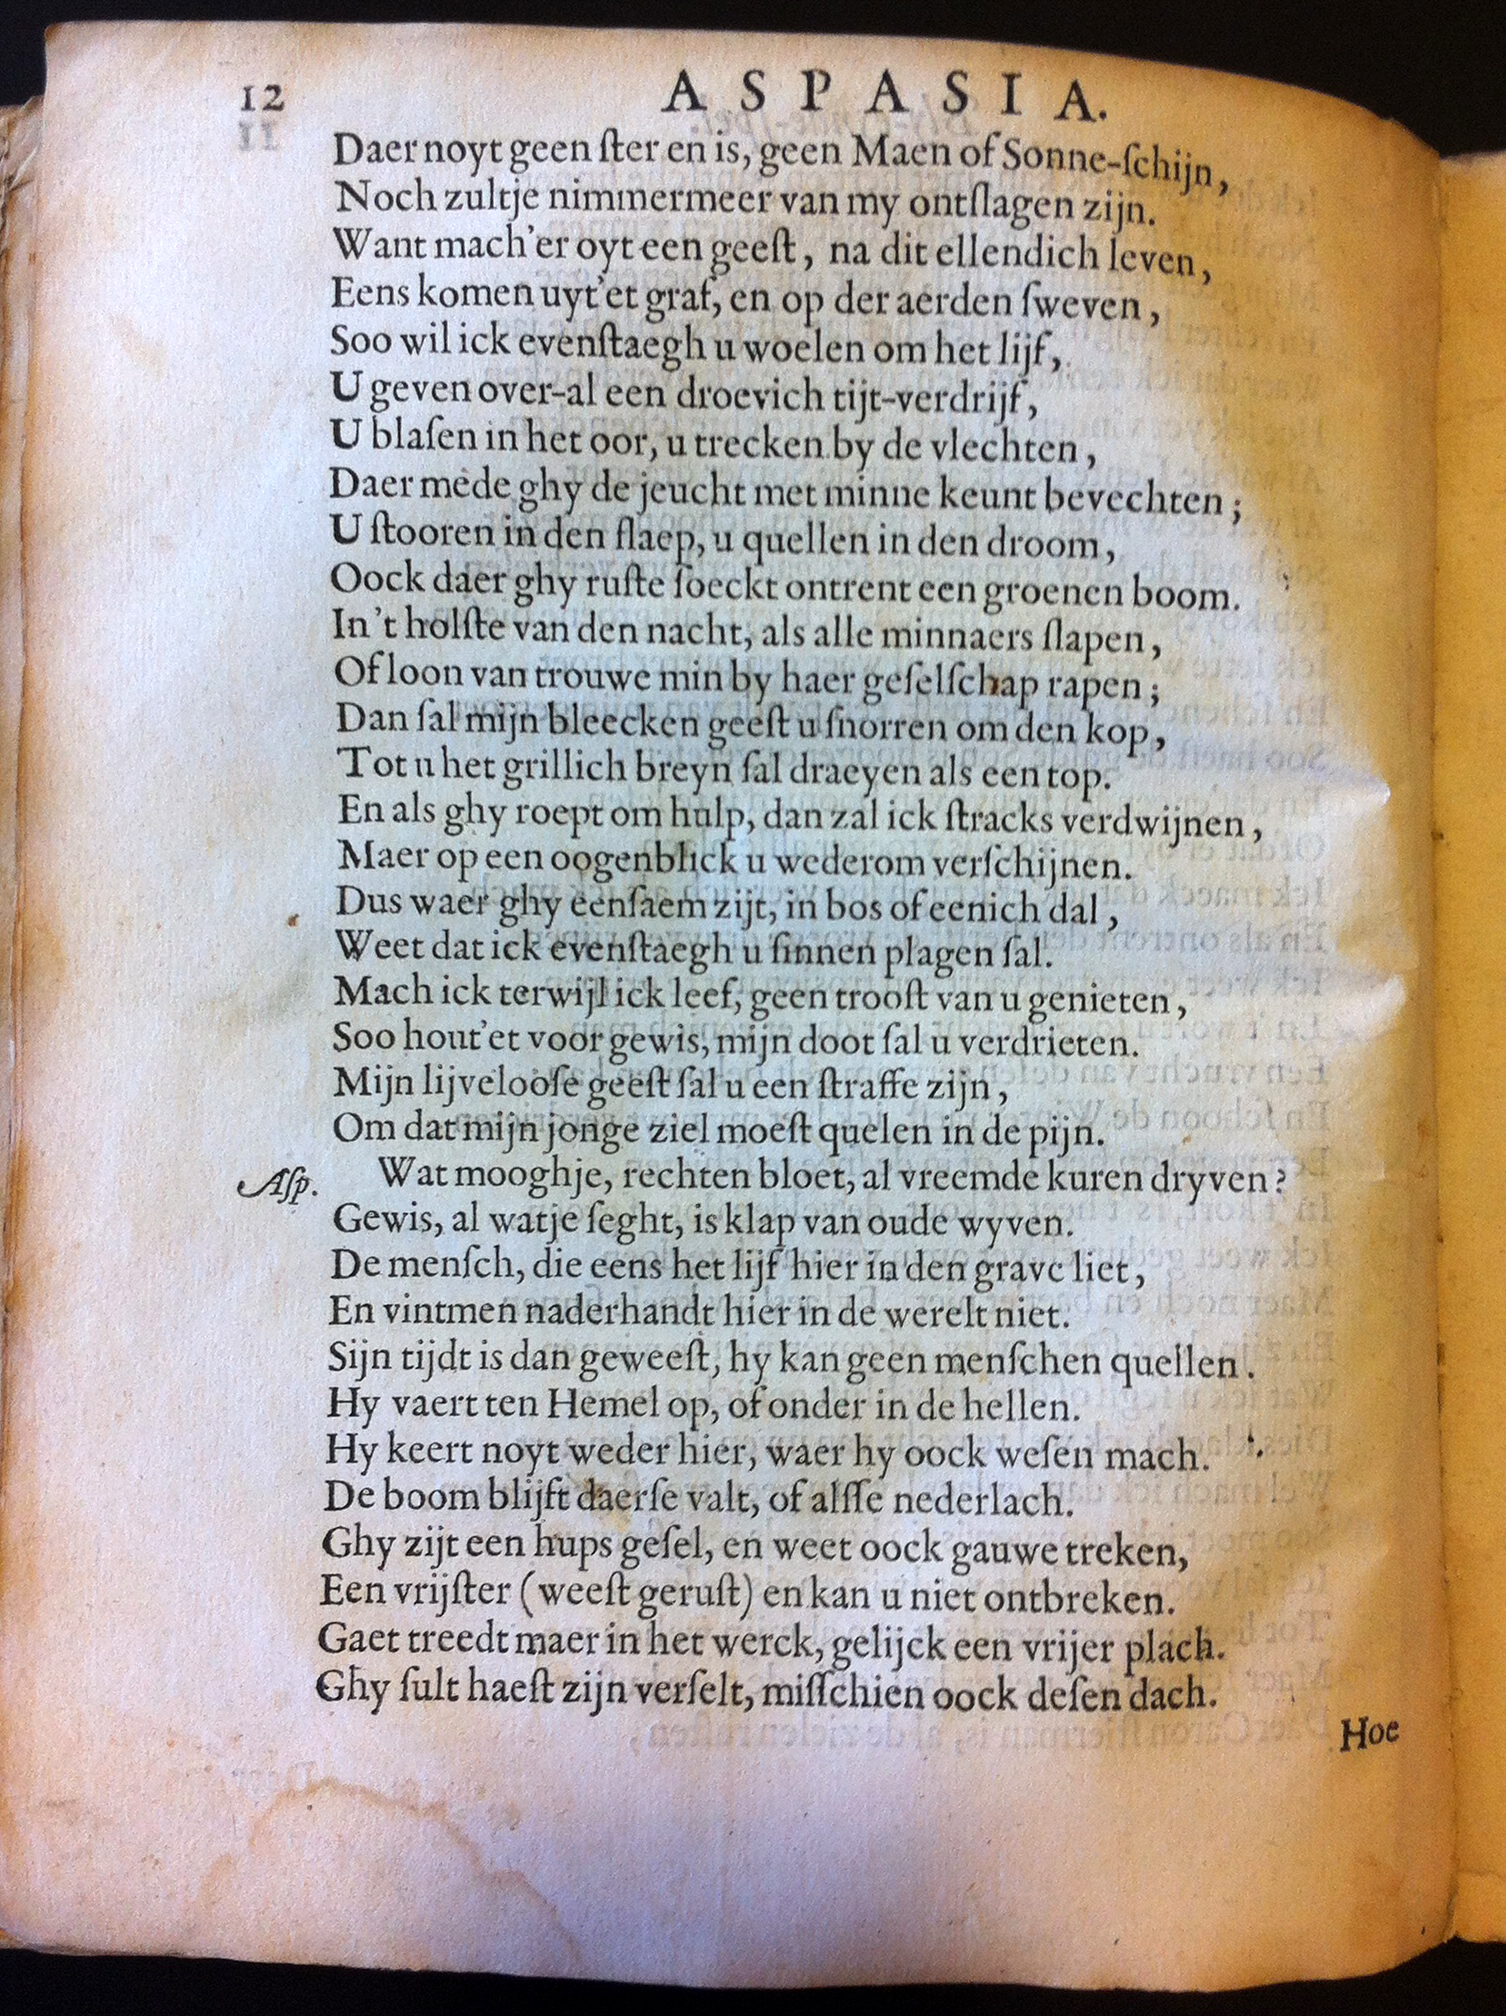 12 ASPASIA.
Daer noyt geen ſter en is, geen Maen of Sonne-ſchijn,
Noch zultje nimmermeer van my ontſlagen zijn.
Want mach'er oyt een geeſt, na dit ellendich leven,
Eens komen uyt'et graf, en op der aerden ſweven,
Soo wil ick evenſtaegh u woelen om het lijf,
U geven over-al een droevich tijt-verdrijf,
U blaſen in het oor, u trecken by de vlechten,
Daer mede ghy de jeucht met minne keunt bevechten;
U ſtooren in den ſlaep, u quellen in den droom,
Oock daer ghy ruſte ſoeckt ontrent een groenen boom.
In't holſte van den nacht, als alle minnaers ſlapen,
Of loon van trouwe min by haer geſelſchap rapen;
Dan ſal mijn bleecken geeſt u ſnorren om den kop,
Tot u het grillich breyn ſal draeyen als een top.
En als ghy roept om hulp, dan zal ick ſtracks verdwijnen,
Maer op een oogenblick u wederom verſchijnen.
Dus waer ghy eenſaem zijt, in bos of eenich dal,
Weet dat ick evenſtaegh u ſinnen plagen ſal.
Mach ick terwijl ick leef, geen trooſt van u genieten,
Soo hout'et voor gewis, mijn doot ſal u verdrieten.
Mijn lijvelooſe geeſt ſal u een ſtraffe zijn,
Om dat mijn jonge ziel moeſt quelen in de pijn.
Aſp. Wat mooghje, rechten bloet, al vreemde kuren dryven?
Gewis, al watje ſeght, is klap van oude wyven.
De menſch, die eens het lijf hier in den grave liet,
En vintmen naderhandt hier in de werelt niet.
Sijn tijdt is dan geweeſt, hy kan geen menſchen quellen.
Hy vaert ten Hemel op, of onder in de hellen.
Hy keert noyt weder hier, waer hy oock weſen mach.
De boom blijft daerſe valt, of alſſe nederlach.
Ghy zijt een hups geſel, en weet oock gauwe treken,
Een vrijſter (weeſt geruſt) en kan u niet ontbreken.
Gaet treedt maer in het werck, gelijck een vrijer plach.
Ghy ſult haeſt zijn verſelt, miſſchien oock deſen dach.
Hoe